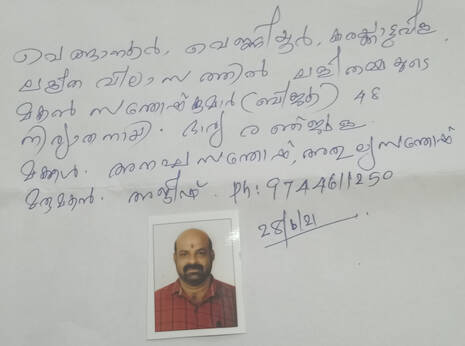 വെങ്ങാനൂർ, വെണ്ണിയൂർ, കരക്കാട്ടുവിള
ലളിത വിലാസത്തിൽ ലളിതമ്മയുടെ
മകൻ സന്തോഷ്കുമാർ (ബിജു) 48
നിര്യാതനായി. ഭാര്യ രഞ്ജുള
മക്കൾ. അനഘ സന്തോഷ്, അതുല്യ സന്തോഷ്
മരുമകൻ. അജീഷ്. Ph: 9744611250
28/6/21